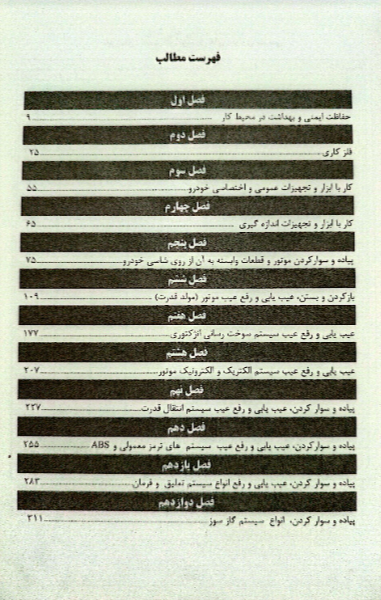 فهرست مطالب
فصل اول
حفاظت ایمنی و بهداشت در محیط کار ........ ۹
فصل دوم
فلز کاری ........ ۲۵
فصل سوم
کار با ابزار و تجهیزات عمومی و اختصاصی خودرو ........ ۵۵
فصل چهارم
کار با ابزار و تجهیزات اندازه گیری ........ ۶۵
فصل پنجم
پیاده و سوارکردن موتور و قطعات وابسته به آن از روی شاسی خودرو ........ ۷۵
فصل ششم
بازکردن و بستن، عیب یابی و رفع عیب موتور (مولد قدرت) ........ ۱۰۹
فصل هفتم
عیب یابی و رفع عیب سیستم سوخت رسانی انژکتوری ........ ۱۷۷
فصل هشتم
عیب یابی و رفع عیب سیستم الکتریک و الکترونیک موتور ........ ۲۰۷
فصل نهم
پیاده و سوار کردن، عیب یابی و رفع عیب سیستم انتقال قدرت ........ ۲۳۷
فصل دهم
پیاده و سوارکردن، عیب یابی و رفع عیب سیستم های ترمز معمولی و ABS ........ ۲۵۵
فصل یازدهم
پیاده و سوار کردن، عیب یابی و رفع انواع سیستم تعلیق و فرمان ........ ۲۸۳
فصل دوازدهم
پیاده و سوار کردن، انواع سیستم گاز سوز ........ ۳۱۱